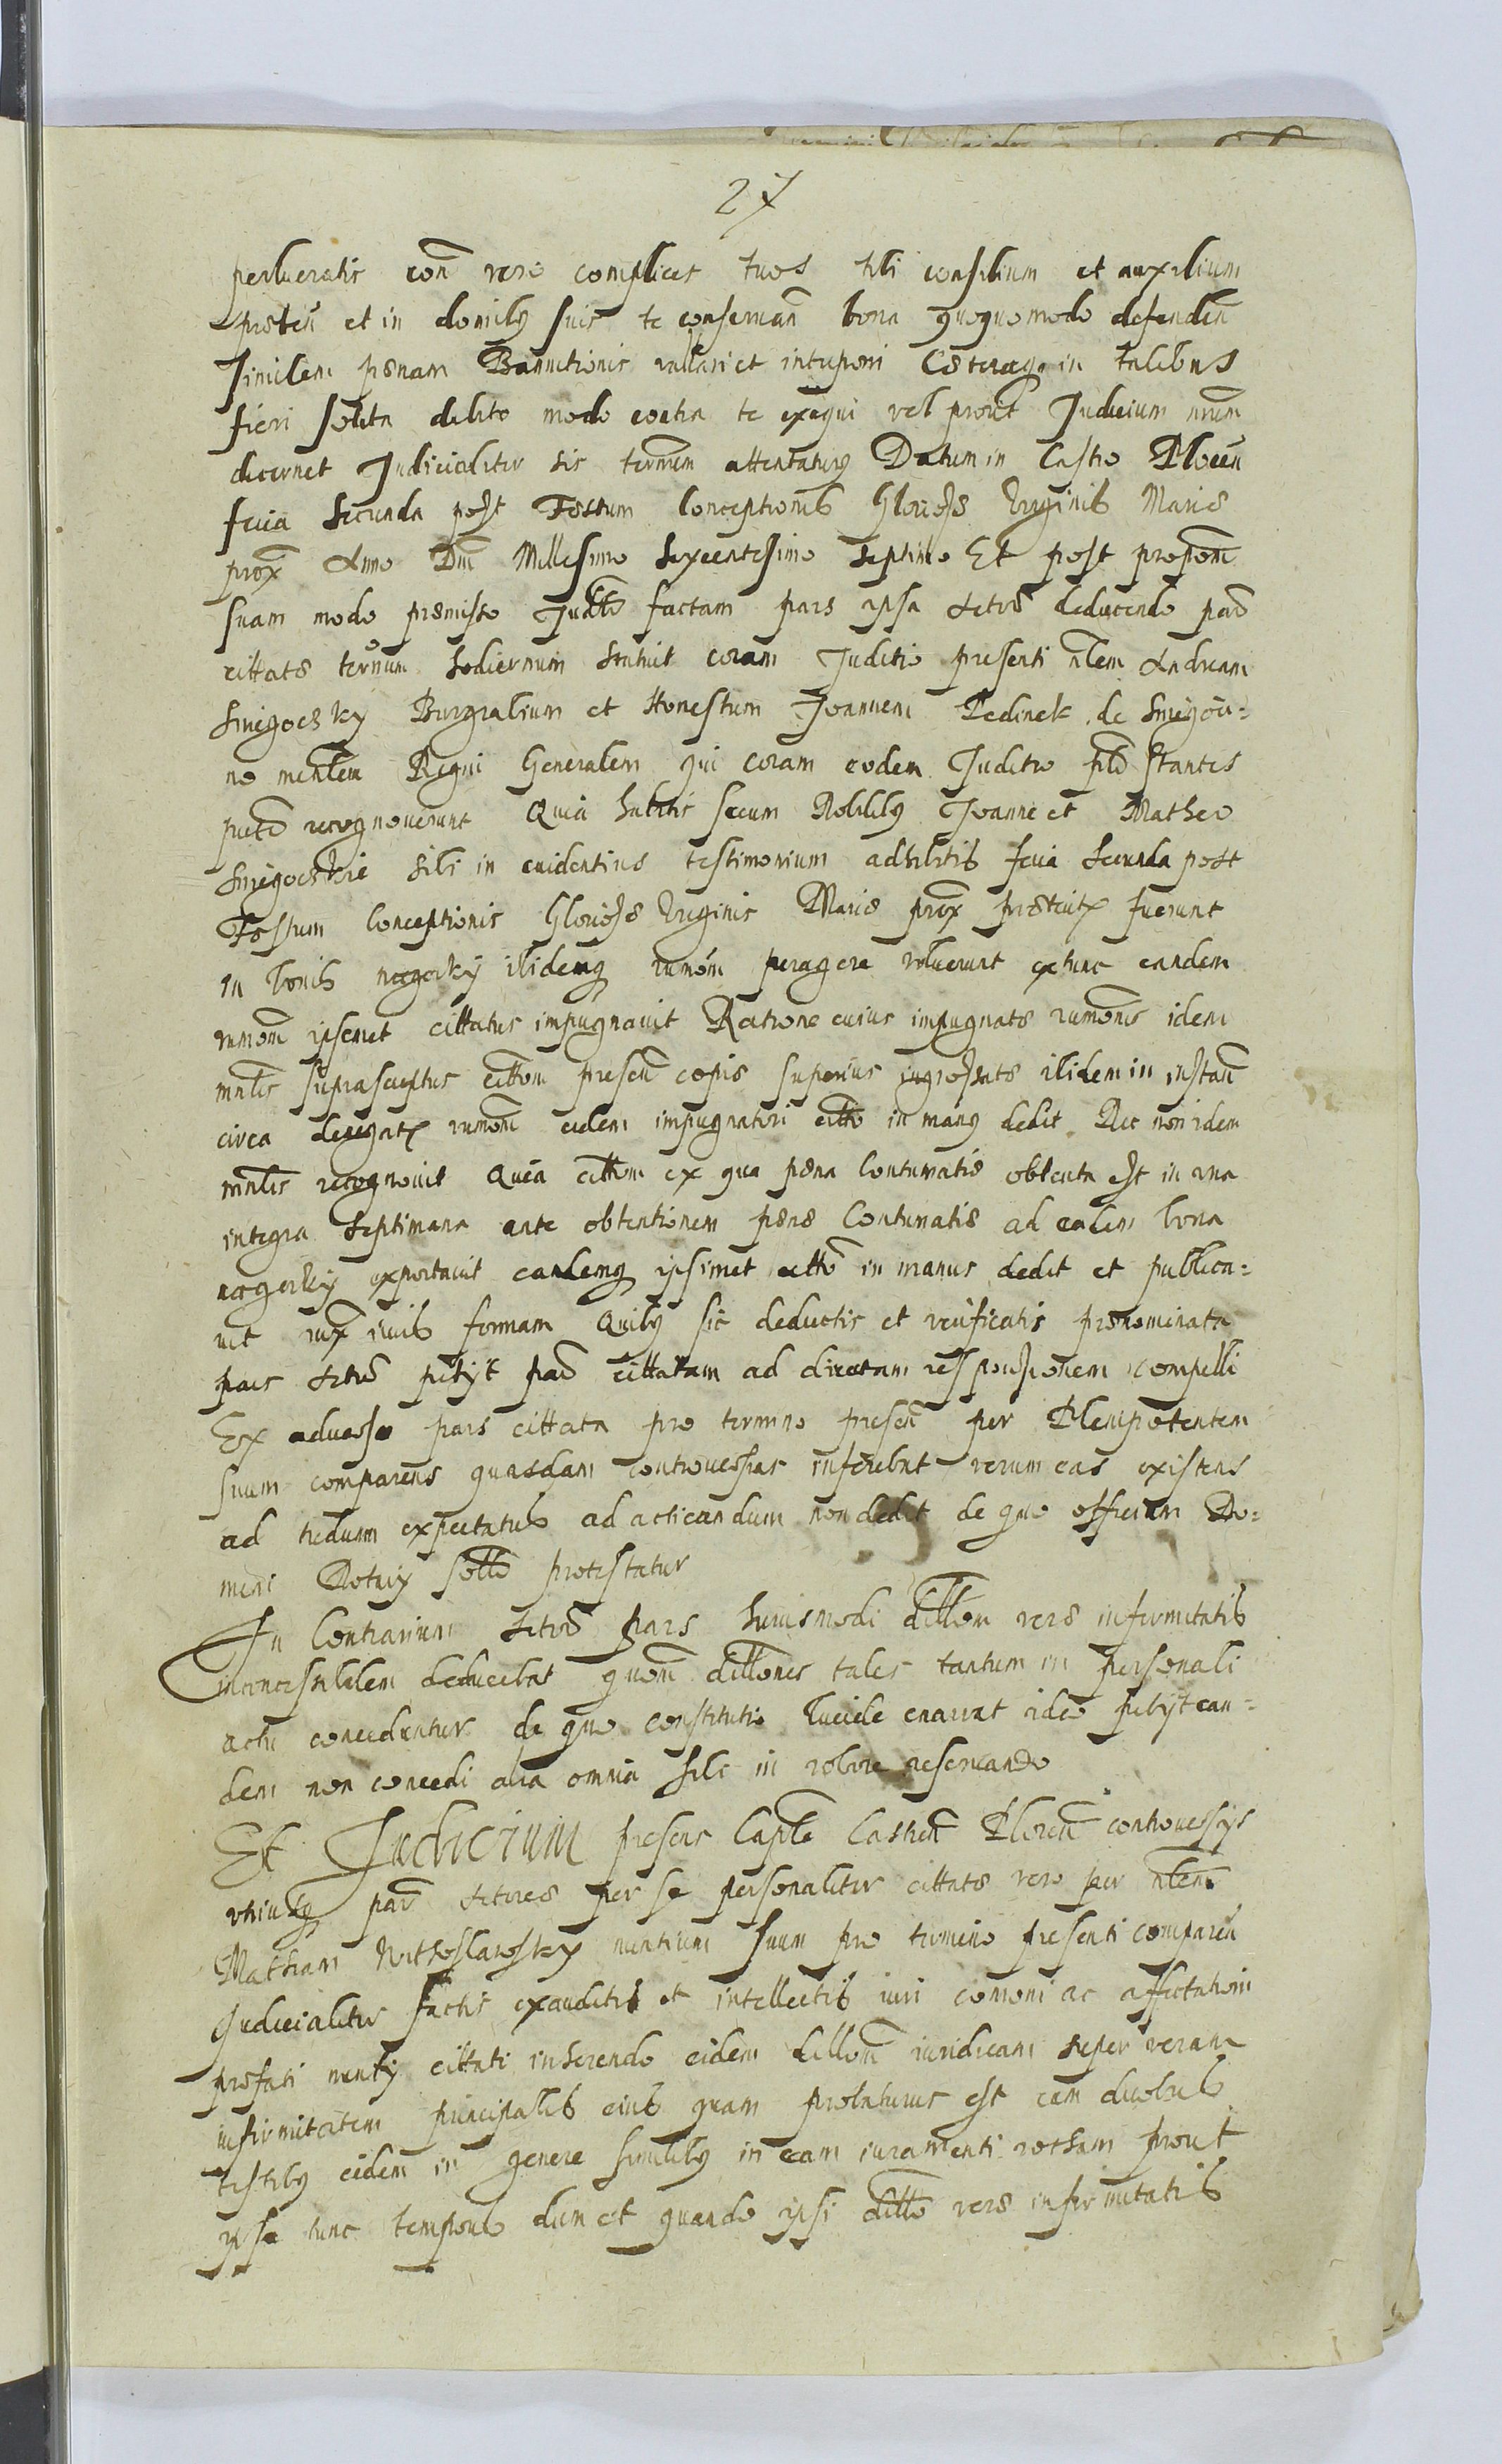 27
perlucratis eoru̅ vero complices tuos tibi consilium et auxilium
praebeñ et in domibq suis te conseruañ bona quoquomodo defendeñ
similem paenam Bannitionis vallari et interponi Caeteraqe in talibus
fieri solita debito modo contra te exequi vel prout Judicium nrum
decernet Judicialiter sis termm attentaturq Datum in Castro Ploceñ
feria secunda post Festum Conceptionis Gloriosae Virginis Mariae
prox Anno Dnī Millesimo Sexcentesimo Septimo Et post proponem
suam modo praemisso Judtr factam pars ipsa Actorea deducendo par
cittatae termum hodiernum statuit coram Juditio presenti nblem Andream
Smiegoczky Burgrabium et Honestum Joannem Pedinek de Smiegoci=
no mnrlem Regni Generalem qui coram eodem Juditio pntr stantes
pubce recognouerunt Quia habitis secum Nobilibq Joanne et Matheo
Smiegoczkie sibi in euidentius testimonium adhibitis feria secunda post
Festum Conceptionis Gloriosae Virginis Mariae prox praeterita fuerunt
in bonis nagorky ibidemq rumoem peragere voluerunt extunc eandem
rumoem ipsemet cittatus impugnauit Ratione cuius impugnatae rumonis idem
mnrlis suprascriptus cittoem preseñ copia superius ingrossatae ibidem in instanti
circa denegatam rumoem eidem impugnatori citto in manq dedit Nec non idem
mnrlis recognouit Quia cittoem ex qua paena Contumatiae obtenta est in una
integra septimana ante obtentionem paenae Contumatiae ad eadem bona
nagorky exportauit eandemq ipsimet citto in manus dedit et publica=
uit iux iuris formam Quibq sic deductis et verificatis praenominata
pars Actorea petyt par cittatam ad directam responsionem compelli
Ex aduerso pars cittata pro termino preseñ per Plenipotentem
suum comparens quasdam controuersias inferebat verum eas existens
ad tredunm expectatus ad acticandum non dedit de quo officium Do=
mini Notary sollr protestatur
In Contrarium Actorea pars huiusmodi dillom verae infirmitatis
inconcessibilem deducebat quom dillones tales tantum in personali
actu conceduntur de quo constitutio lucide enarrat ideo petyt ean=
dem non concedi alia omnia sibi in robore reseruando
Et Judicium presens Capltr Castreñ Ploceñ controuersys
vtriusq par Actoreae per se personaliter cittatae vero per nblem
Mathiam nuntium suum pro termino presenti compareñ
Judicialiter factis exauditis et intellectis iuri comoni ac affectationi
prefati nunty cittati inherendo eidem dillom iuridicam super veram
infirmitatem principalis eius quam probaturus est cum duobus
testibq eidem in genere similibq in eam iuramenti rotham prout
ipse tunc temporis dum et quando ipsi dillo verae infirmitatis